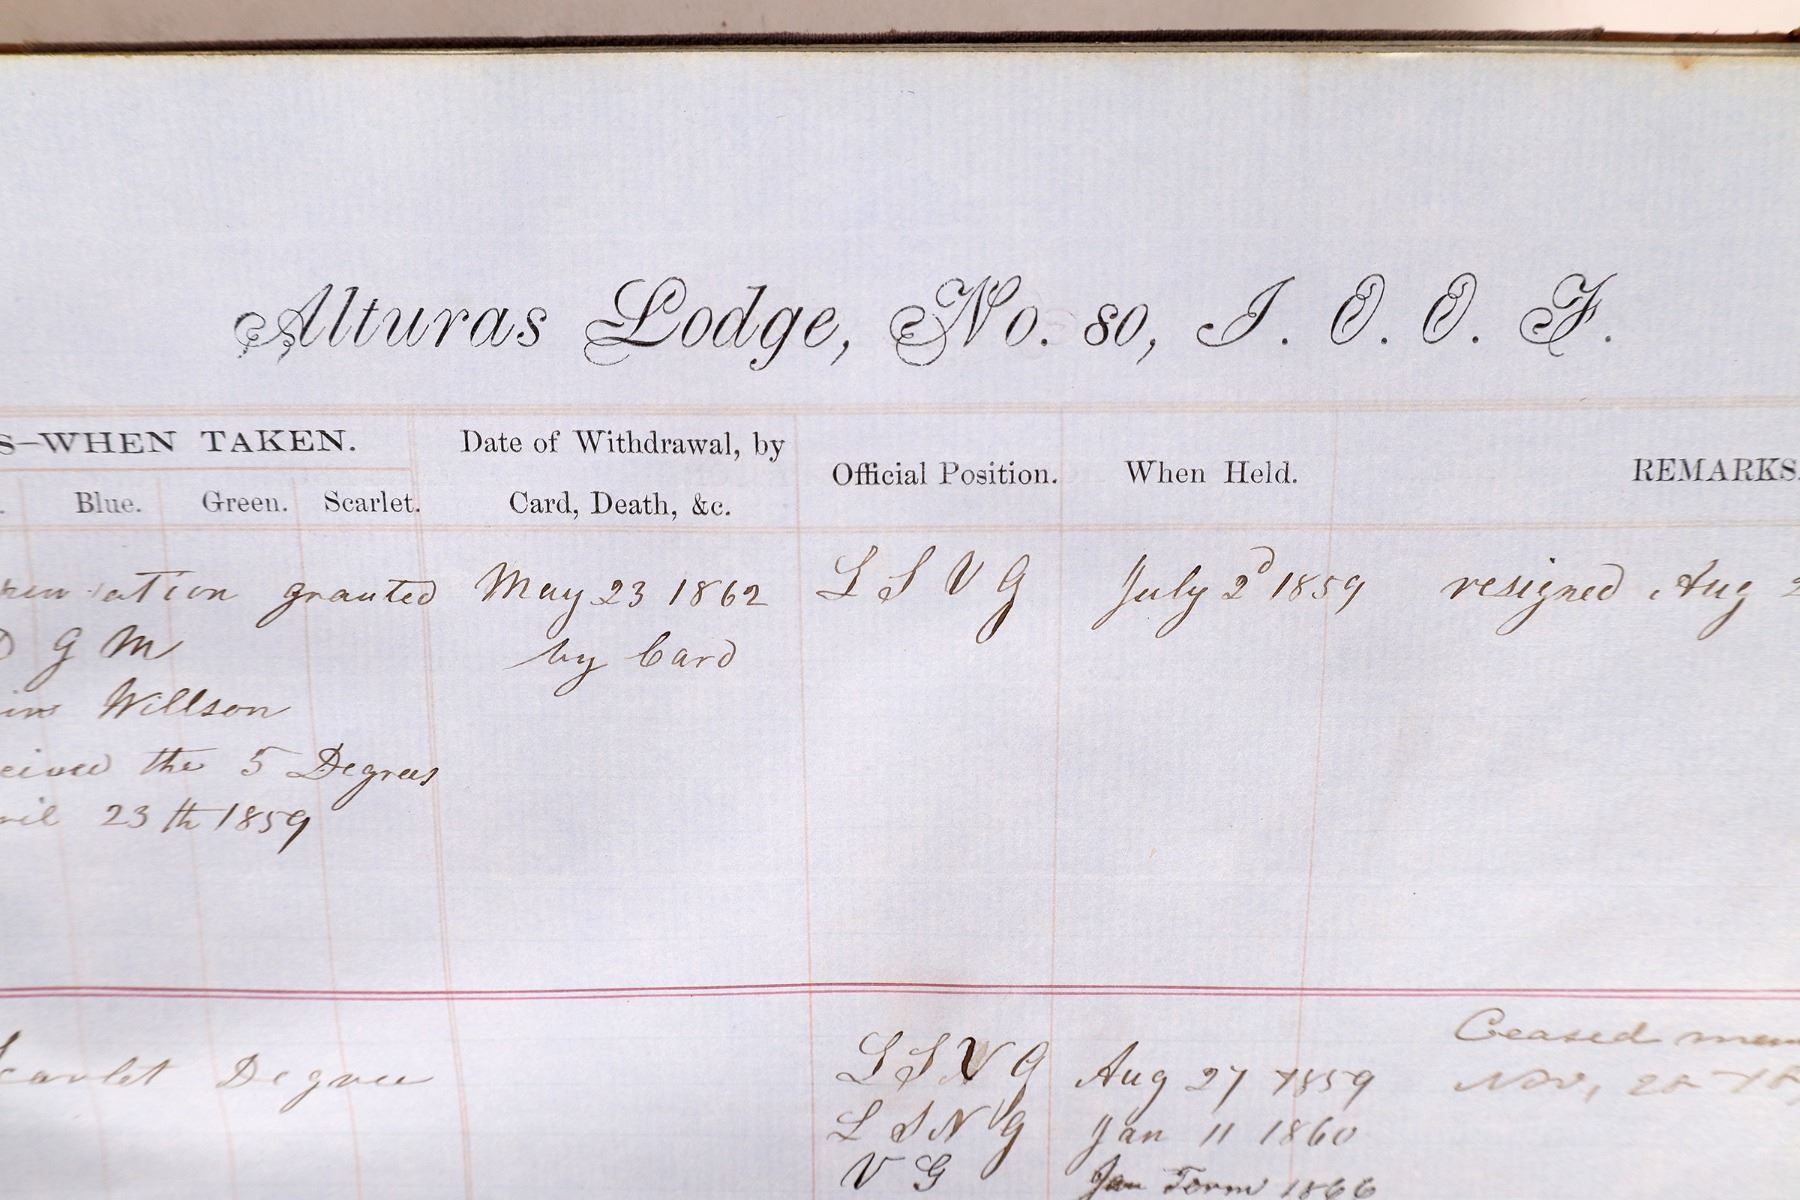 Alturas Lodge, No. 80, I. O. O. F.
S—WHEN TAKEN.
Blue. Green. Scarlet.
Date of Withdrawal, by
Card, Death, &c.
Official Position.
When Held.
REMARKS.
granted
G M
Willson
the 5 Degrees
23th 1859
May 23 1862
by Card
L S V G
July 2d 1859
resigned Aug 2
Scarlet Degree
L S V G Aug 27 1859
L S N G Jan 11 1860
V G Jan Term 1866
Ceased mem
Nov,